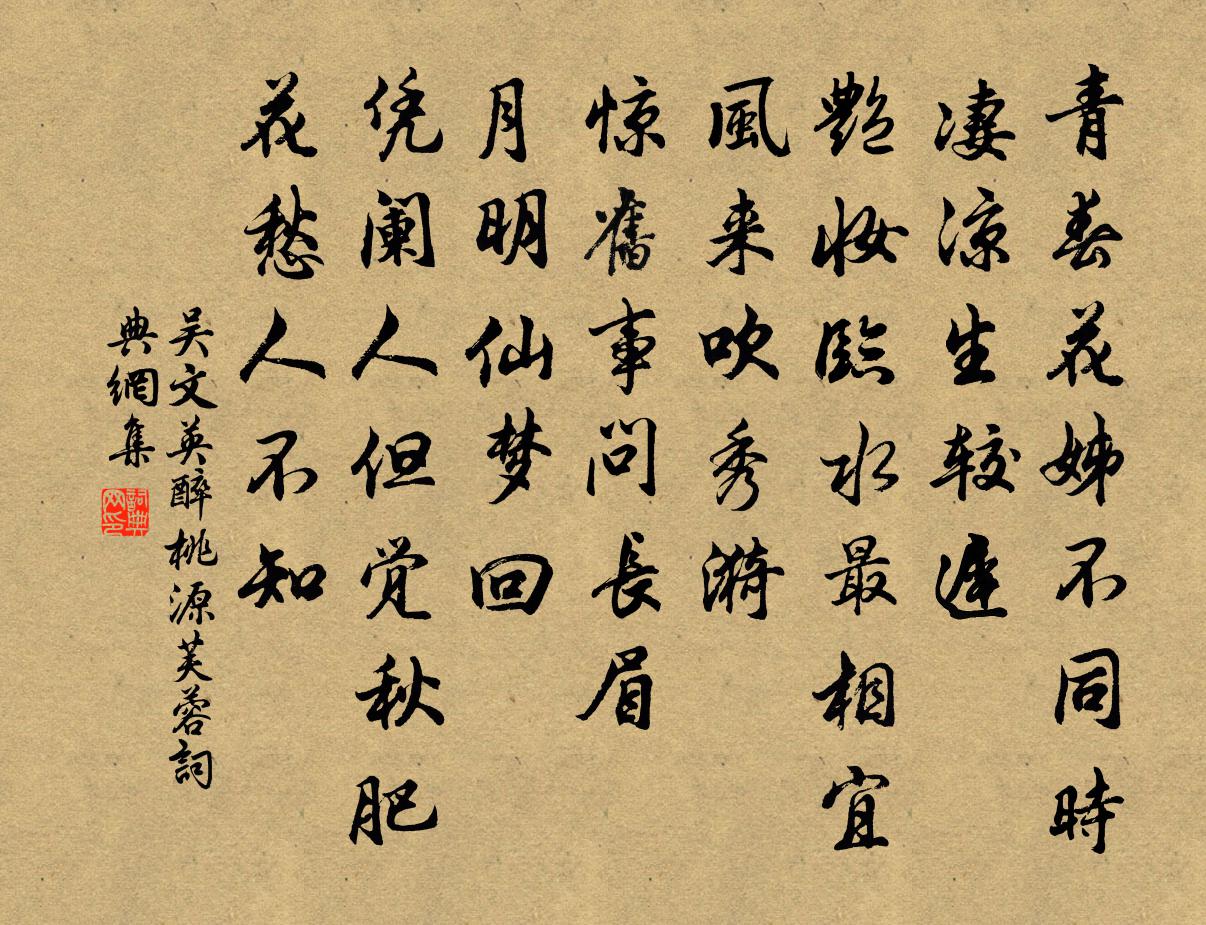 青春花姊不同時
凄凉生較遲
艷妝臨水最相宜
風来吹秀漪
惊舊事問長眉
月明仙梦回
凭阑人但觉秋肥
花愁人不知
吴文英醉桃源芙蓉詞
典網集
詞典网印